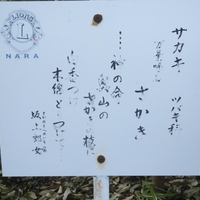 LIONS
L
NARA
サカキ ツバキ科
さかき
……神の命
奥山の
さかきの枝に
白香つけ
木綿とりつけ
坂上郎女